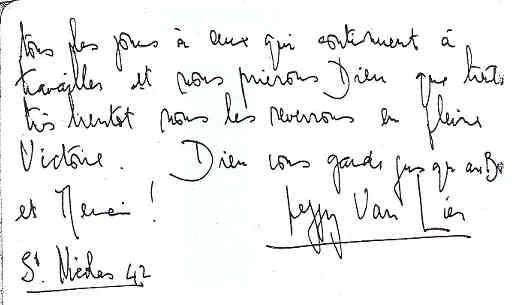 tous les jours à ceux qui continuent à
travailler et nous prierons Dieu que
très bientot nous les reverrons en pleine
Victoire. Dieu vous garde jusqu'au
et Merci !
Peggy Van Lier
St. Nicolas 42